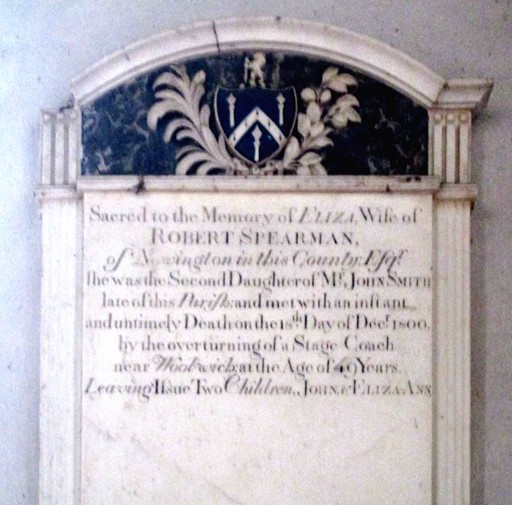 Sacred to the Memory of ELIZA, Wife of
ROBERT SPEARMAN,
of Newington in this County. Esqr.
She was the Second Daughter of Mr. JOHN SMITH
late of this Parish: and met with an instant
and untimely Death on the 18th Day of Decr. 1800,
by the overturning of a Stage Coach
near Woolwich, at the Age of 49 Years.
Leaving Issue Two Children, JOHN & ELIZA ANN